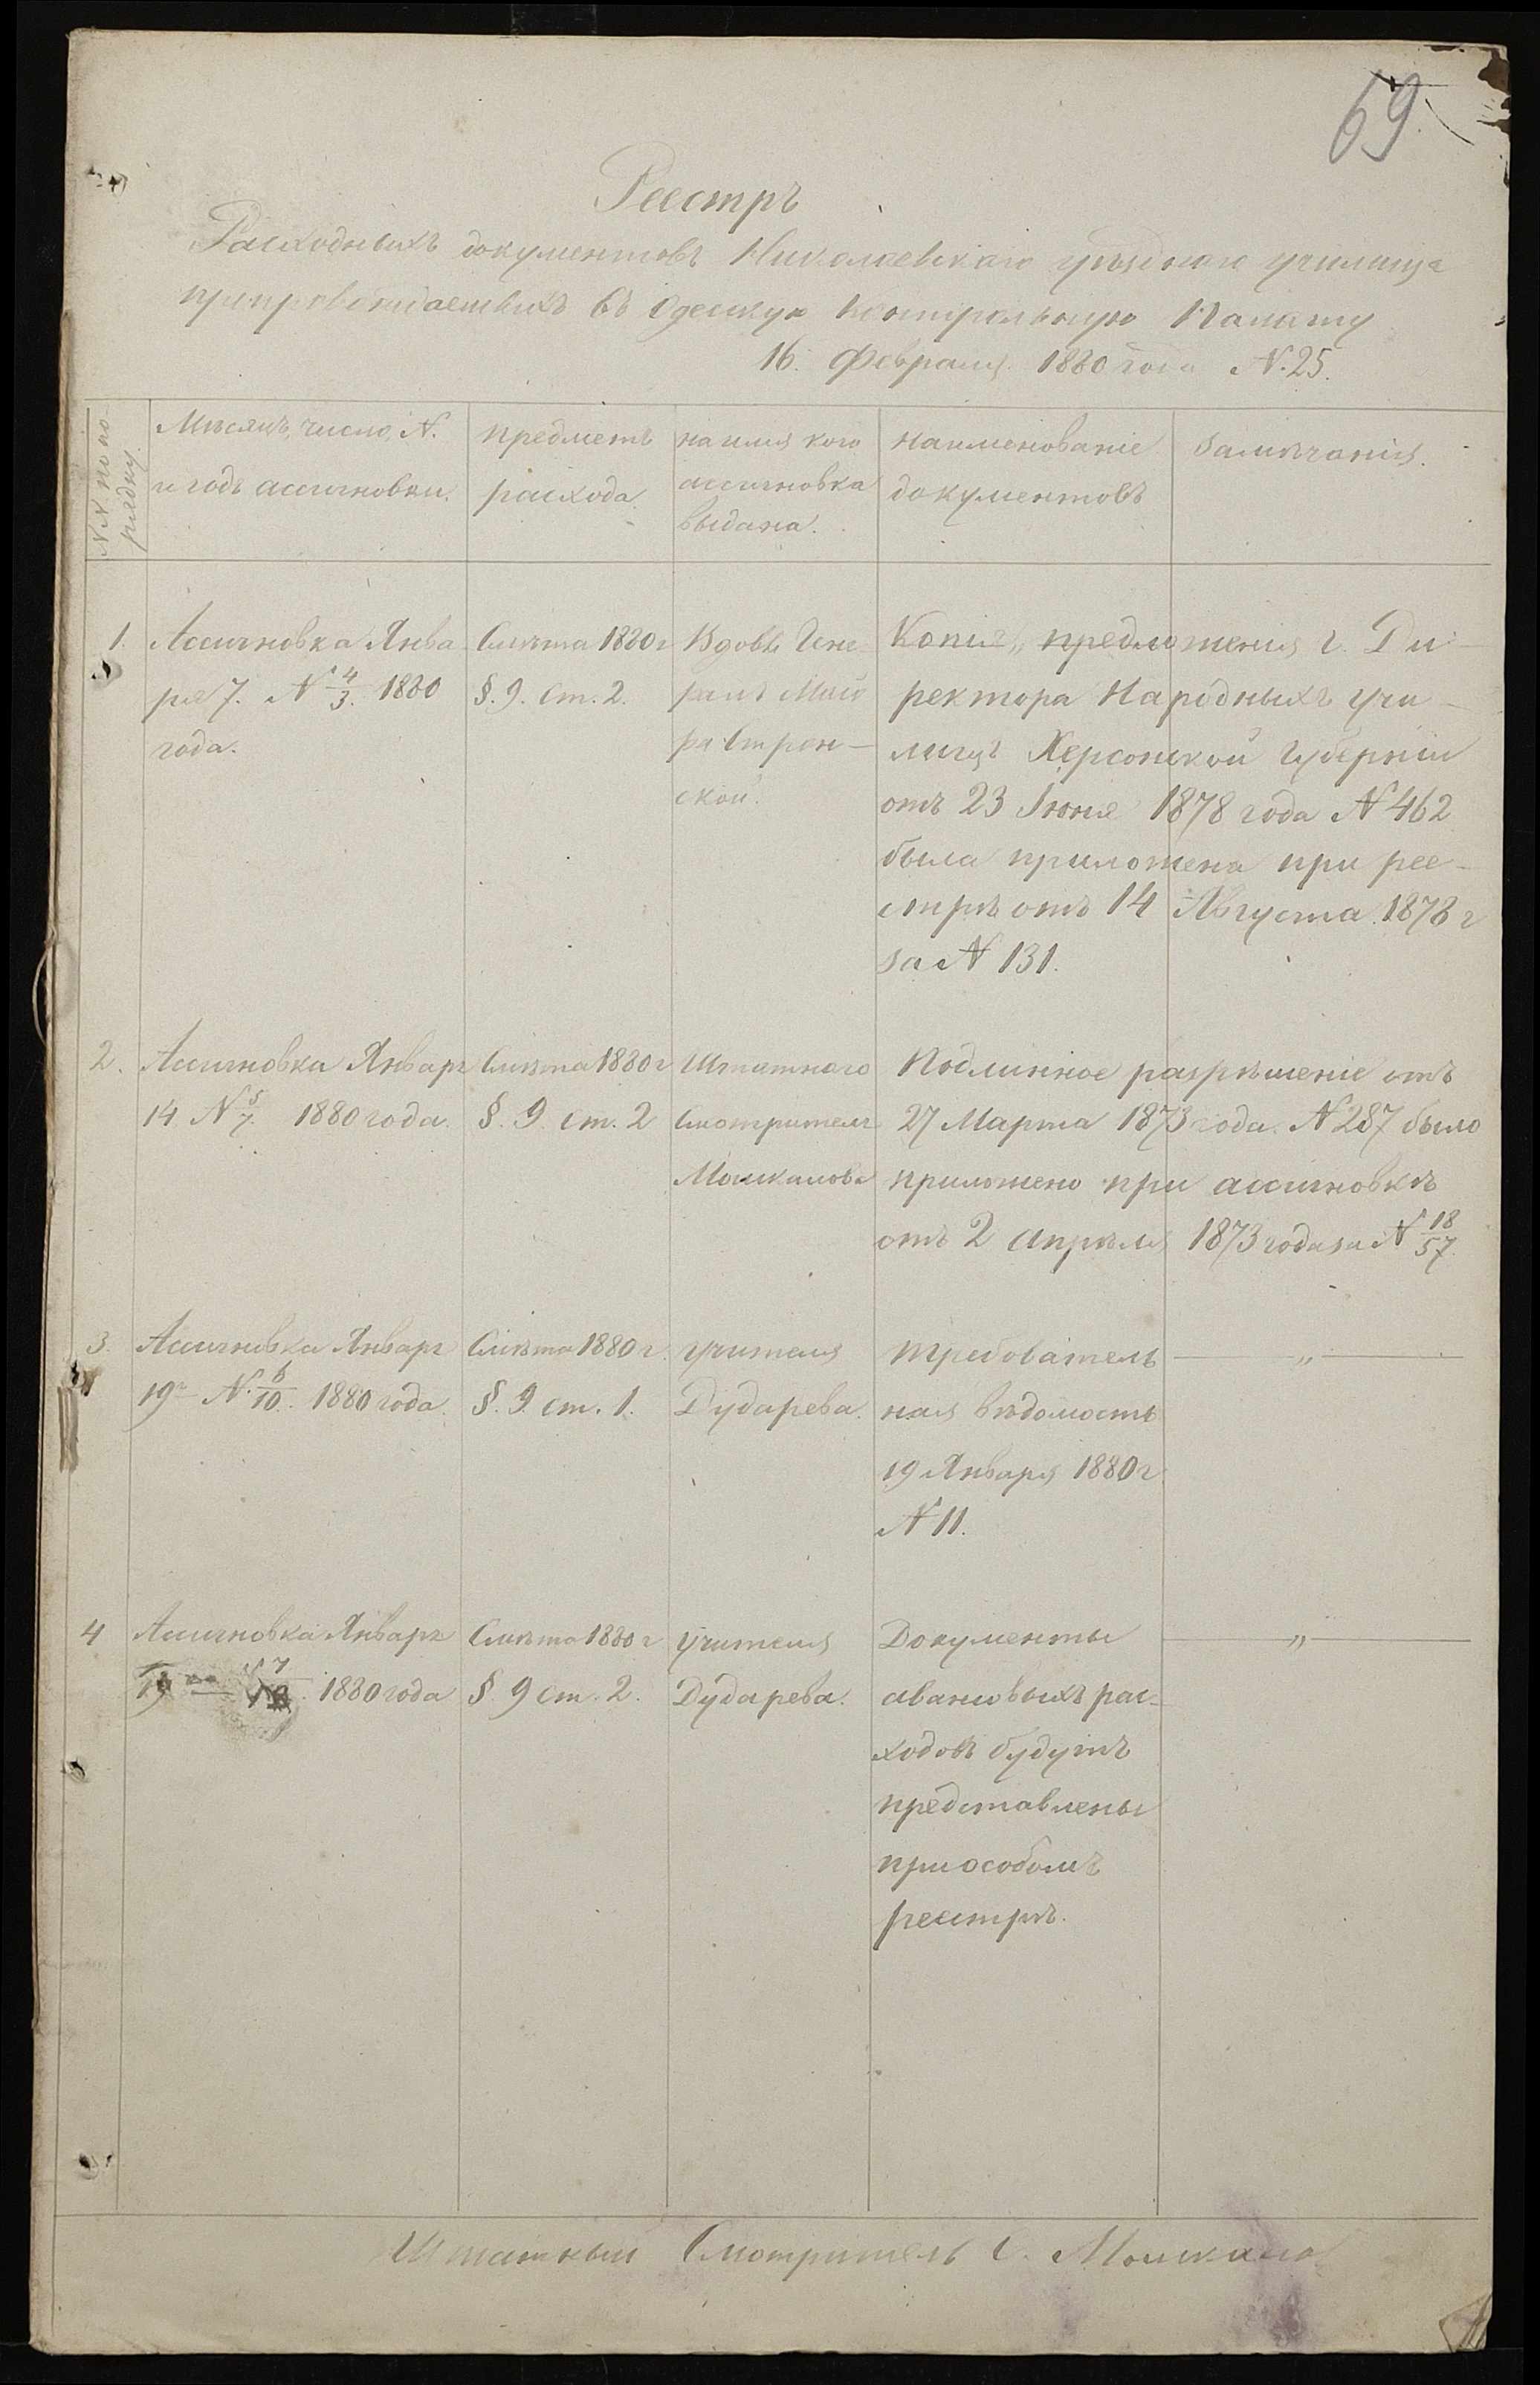 69.
Реестръ
Расходныхъ документовъ Николаевскаго уѣзднаго училища
препровождаемыхъ въ Одескую Контрольную Палату
16 Февраля 1880 года N. 25.
NN по по-
рядку.
Мѣсяцъ, число, N.
и годъ ассигновки.
предметъ
расхода.
на имя кого
ассигновка
выдана.
наименованіе
документовъ
Замѣчанія.
1.
Ассигновка Янва
ря 7. N 4/3. 1880
года.
Смѣта 1880 г
§. 9. ст. 2.
Вдовѣ Гене
ралъ Маіо
ра
ской.
Копія „ предложенія г. Ди-
ректора Народныхъ Учи-
лищъ Херсонской Губерніи
отъ 23 Іюня 1878 года N 462
была приложена при рее-
стрѣ отъ 14 Августа 1878 г
за N 131.
2.
Ассигновка Январ
14 N 5/7. 1880 года.
Смѣта 1880 г
§. 9. ст. 2
Штатнаго
Смотрителя
Подлинное разрѣшеніе отъ
27 Марта 1873 года. N 287 было
приложено при ассигновкѣ
отъ 2 Апрѣля 1873 года за N 18/57.
3.
Ассигновка Январ
19 N. 6/10. 1880 года.
Смѣта 1880 г.
§. 9. ст. 1.
Учителя
Дударева.
Требователь
ная вѣдомость
19 Января 1880 г
N 11.
„
4
Ассигновка Январ
19 1880 года
Смѣта 1880 г
§. 9 ст. 2.
Учителя
Дударева.
Документы
авансовыхъ рас-
ходовъ будутъ
представлены
при особомъ
реестрѣ.
„
Штатный Смотритель С.